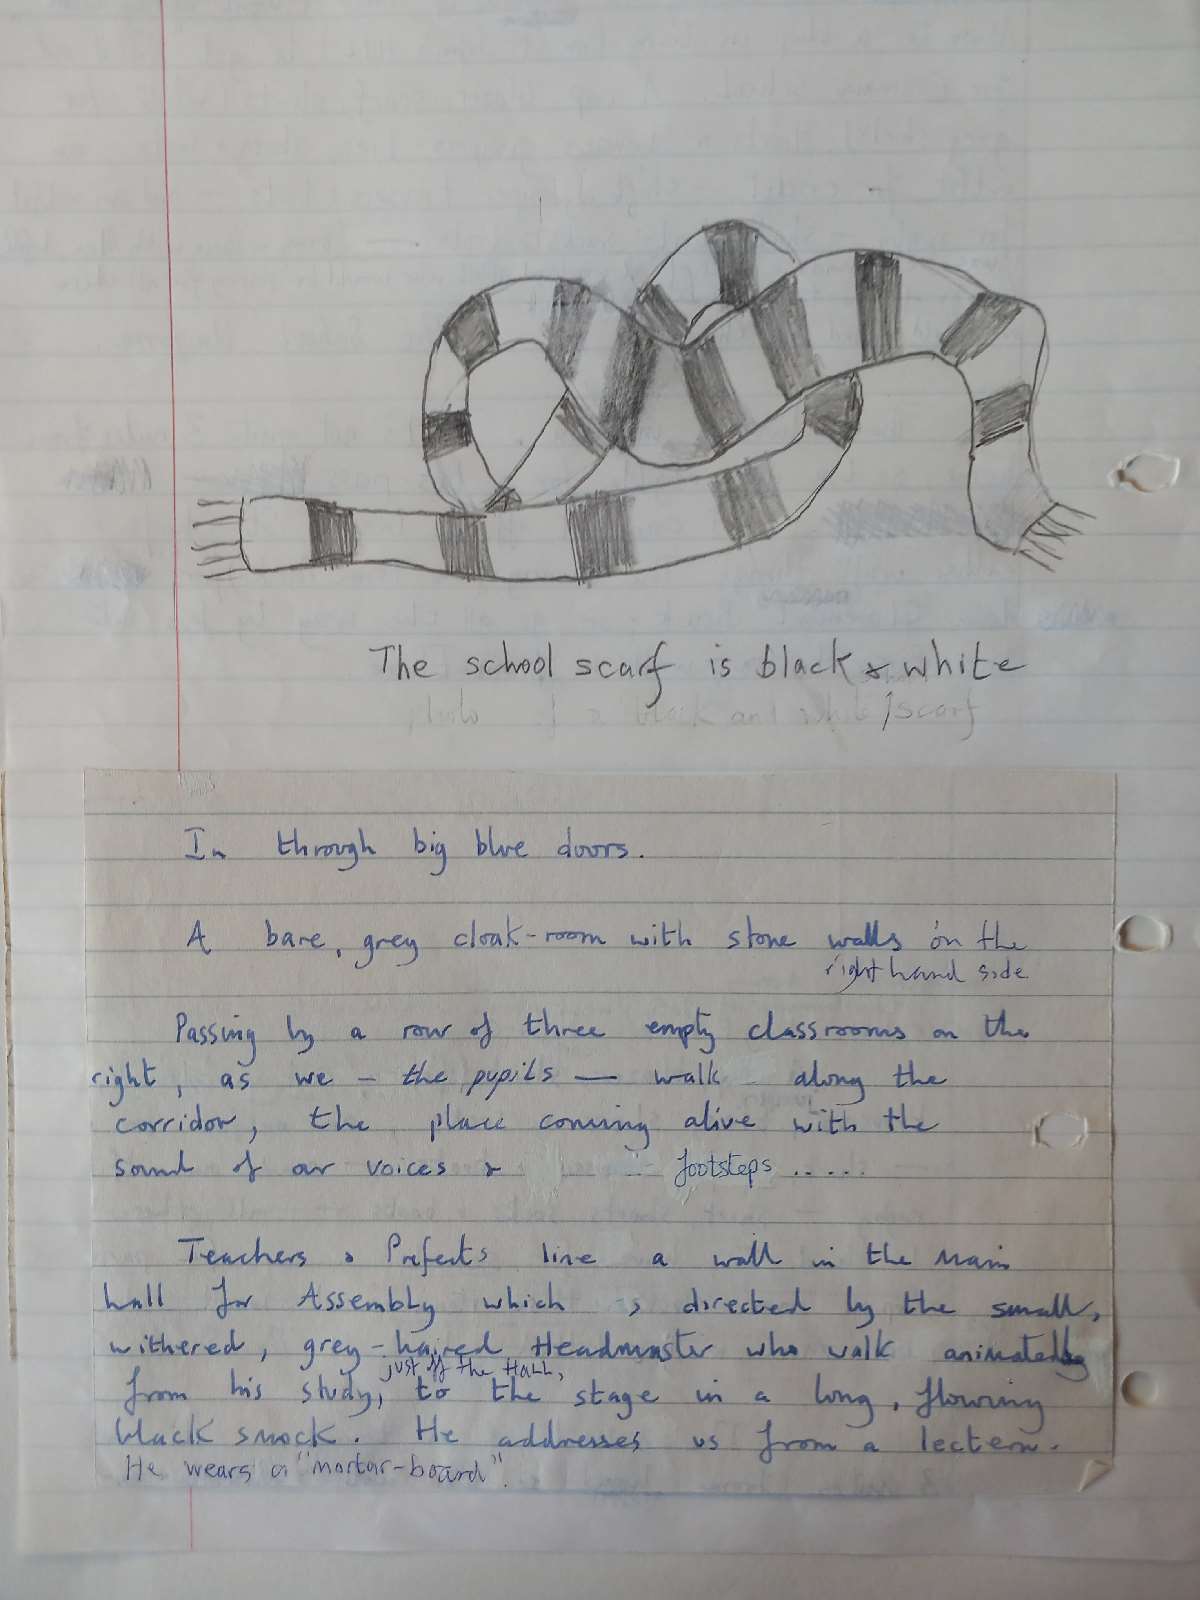 The school scarf is black & white
black and white scarf
In through big blue doors.
A bare, grey cloak-room with stone walls on the
right hand side
Passing by a row of three empty classrooms on the
right, as we - the pupils - walk along the
corridor, the place coming alive with the
sound of our voices & footsteps .....
Teachers & Prefects line a wall in the main
hall for Assembly which is directed by the small,
withered, grey-haired Headmaster who walk animatedly
just off the Hall,
from his study, to the stage in a long, flowing
black smock. He addresses us from a lectern.
He wears a "mortar-board".